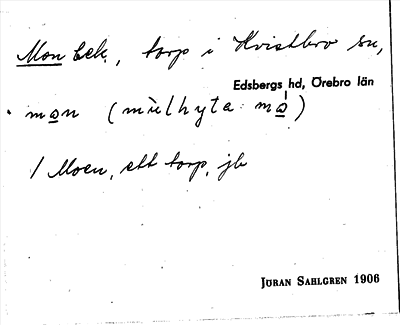 Mon bek., torp i Kvistbro sn,
Edsbergs hd, Örebro län
man (mùlhyta: må)
1 Moen, ett torp, jb
JÖRAN SAHLGREN 1906